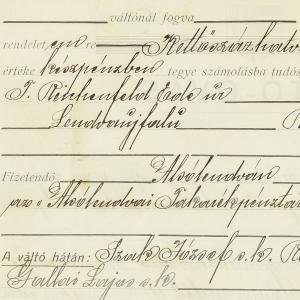 váltónál fogva
rendelet, én re Kettőszázhatv
értéke készpénzben tegye számolásba tudós
T. Reichenfeld Ede úr
Lendvaújfalú
Fizetendő Alsólendván
az Alsólendvai Takarékpénztár
A váltó hátán: Szak József s.k. R
Gallai Lajos s.k.